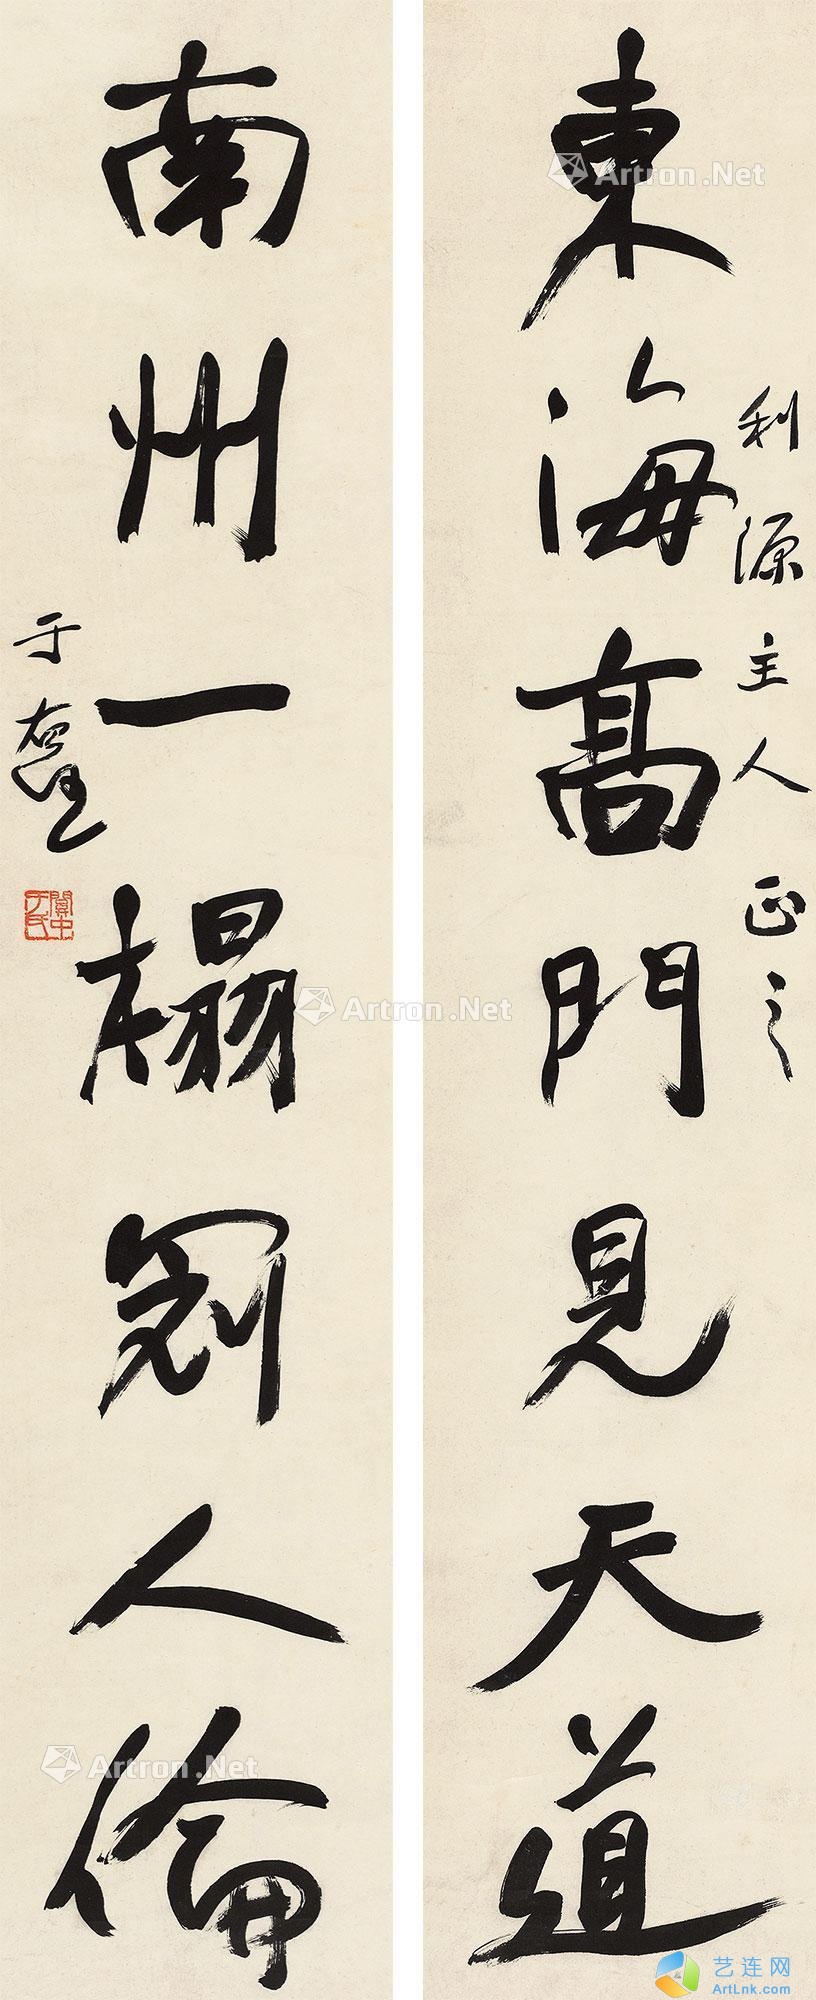 東海高門見天道
利源主人正之
南州一榻冠人倫
于右任
關中于氏
Artron.Net
Artron.Net
Artron.Net
艺连网
ArtLnk.com